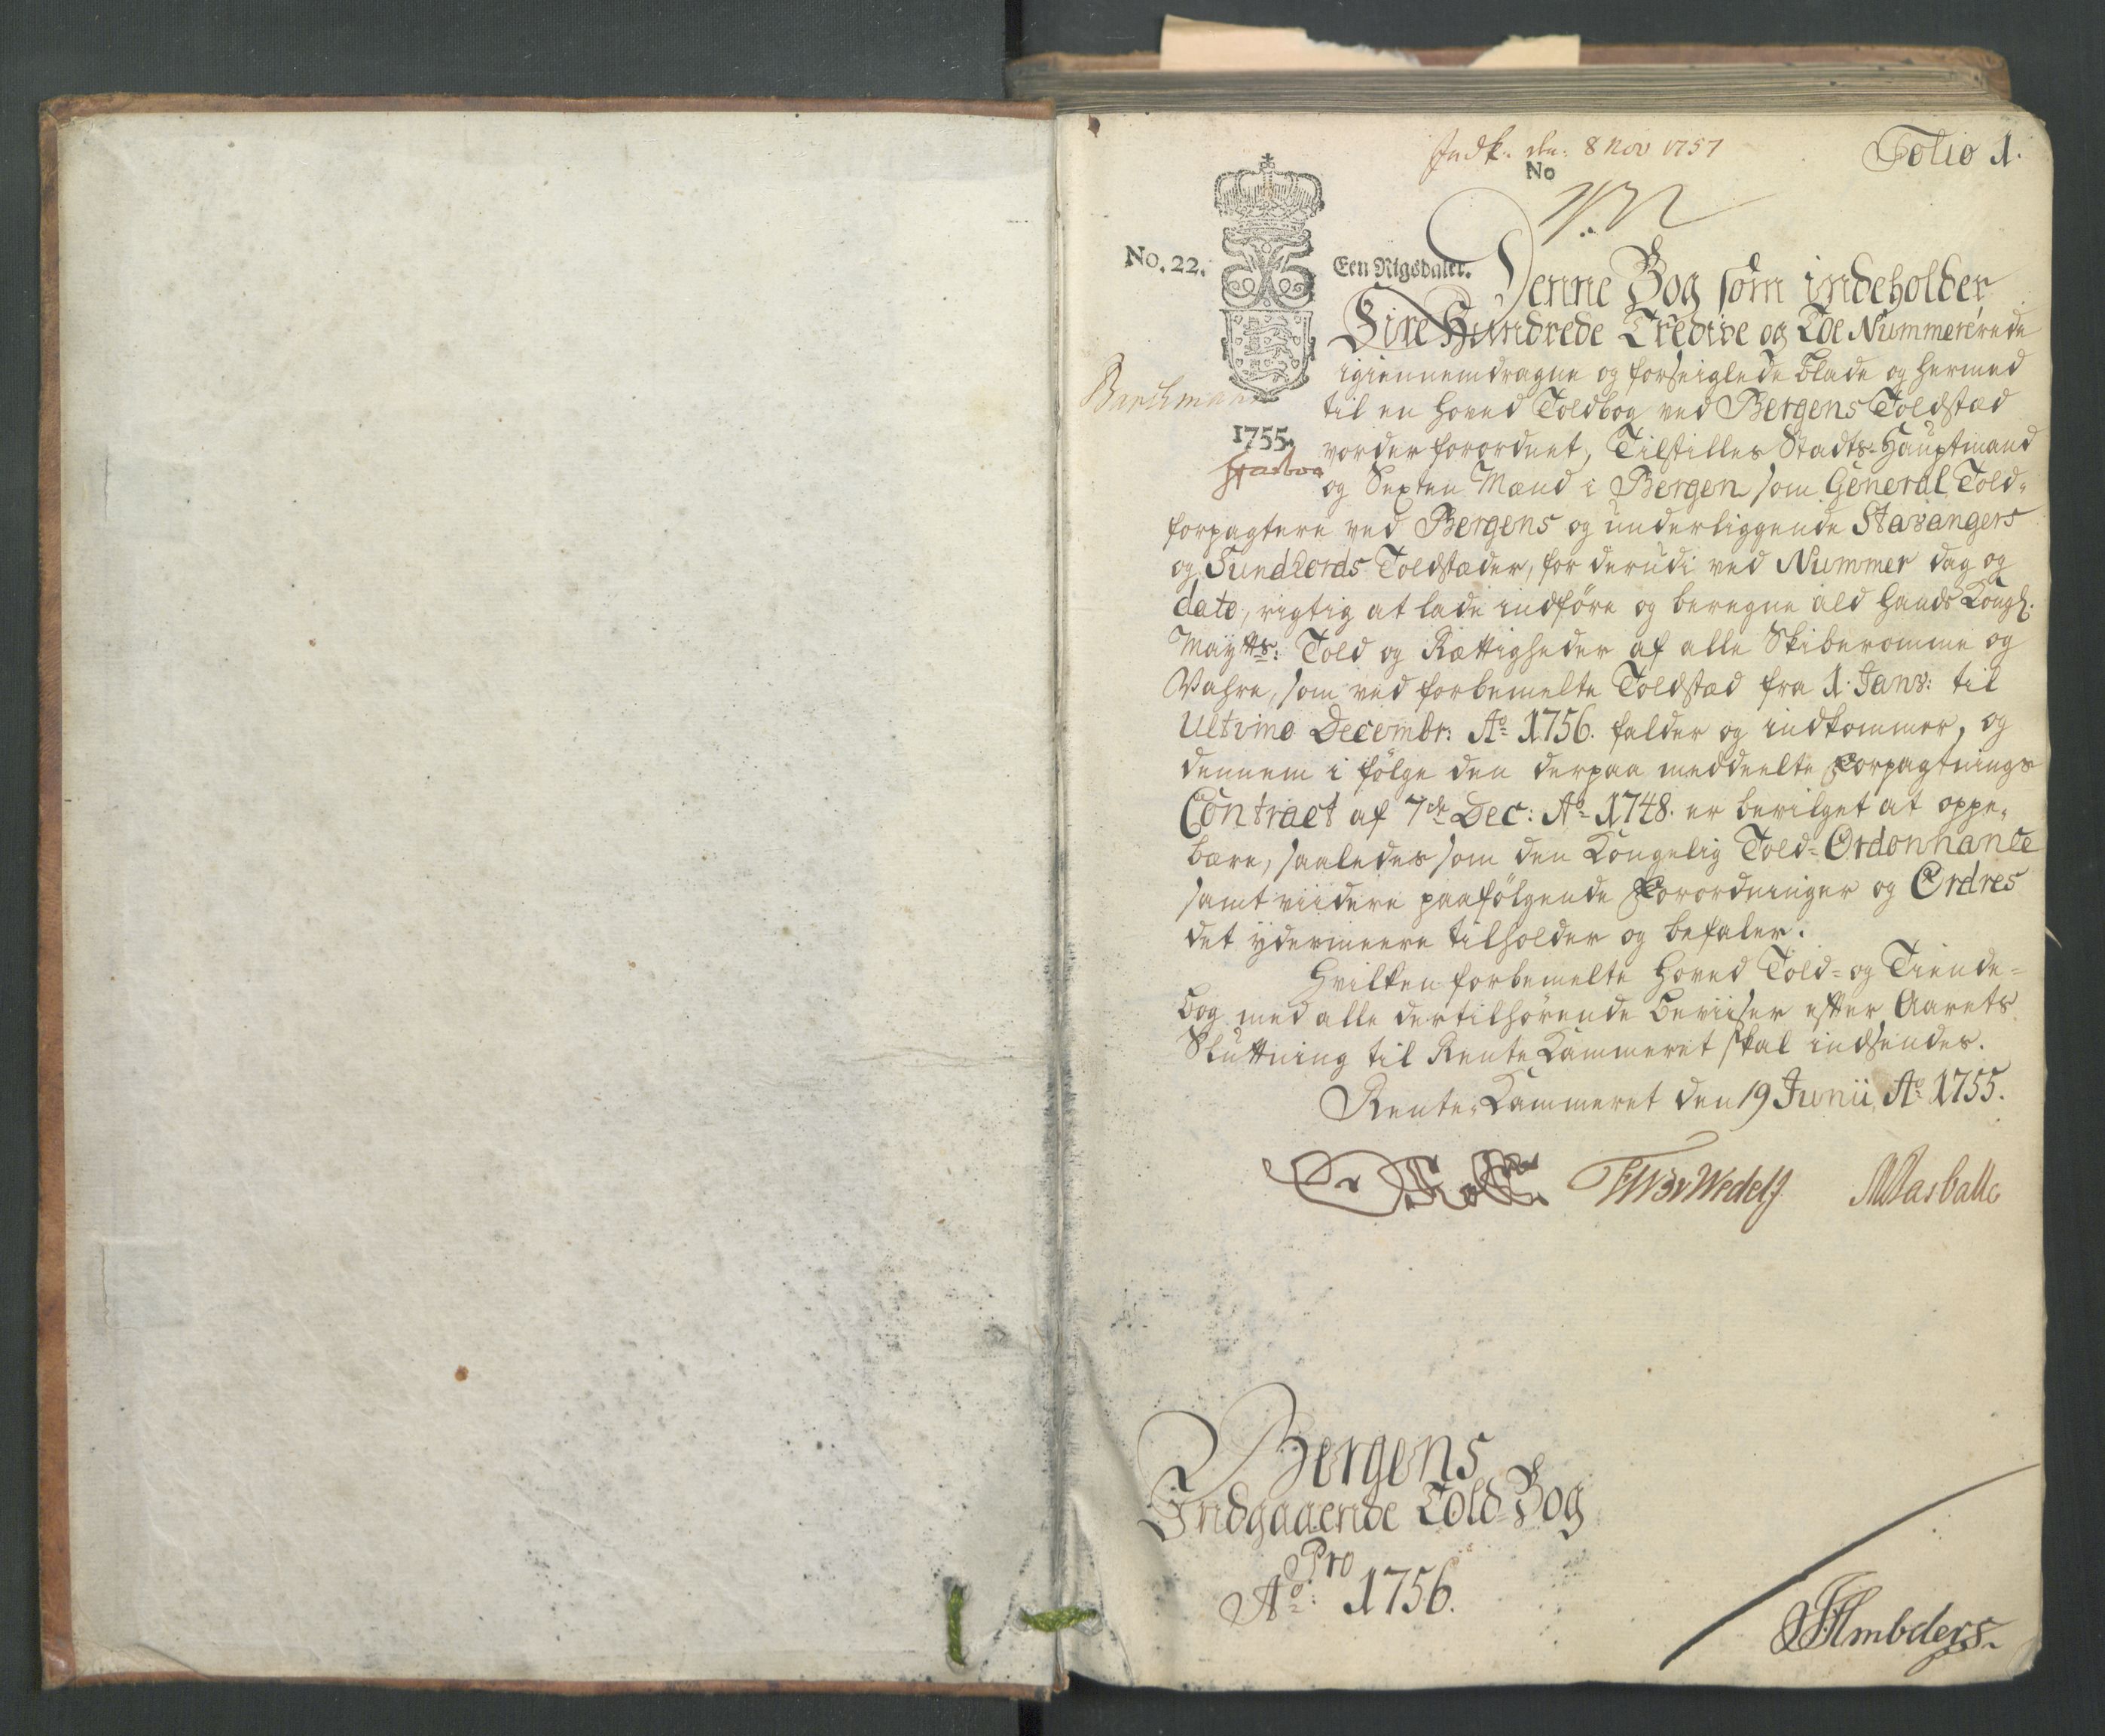 Indk. den: 8 Nov 1757
Folio 1.
No
No. 22.
Een Rigsdaler.
1755.
Denne Bog som indeholder
Fire Hundrede Tredive og Toe Nummererede
igiennemdragne og forseiglede blade og hermed
til en Hoved Toldbog ved Bergens Toldstæd
vorder forordnet, Tilstilles Stadts-Hauptmand
og Sexten Mænd i Bergen som General Told-
forpagtere ved Bergens og underliggende Stavangers
og Sundlords Toldstæder, for derudi ved Nummer dag og
dato, rigtig at lade indføre og beregne ald Hands Kongl.
Maÿtts: Told og Rættigheder af alle Skiberomme og
Vahre, som ved forbemelte Toldstæd fra 1. Janv: til
Ultimo Decembr: Ao 1756. falder og indkommer, og
dennem i følge den derpaa meddeelte Forpagtnings
Contract af 7de Dec: Ao 1748. er bevilget at oppe-
bære, saaledes som den Kongelig Told-Ordonnance
samt viidere paafølgende Forordninger og Ordres
det ydermeere tilholder og befaler.
Hvilken forbemelte Hoved Told- og Tiende-
bog med alle dertilhørende Beviiser efter Aarets
Sluttning til Rente Kammeret skal indsendes.
Rente-Kammeret den 19 Junii Ao 1755.
Bergens
Indgaaende Told-Bog
Pro
Ao: 1756.